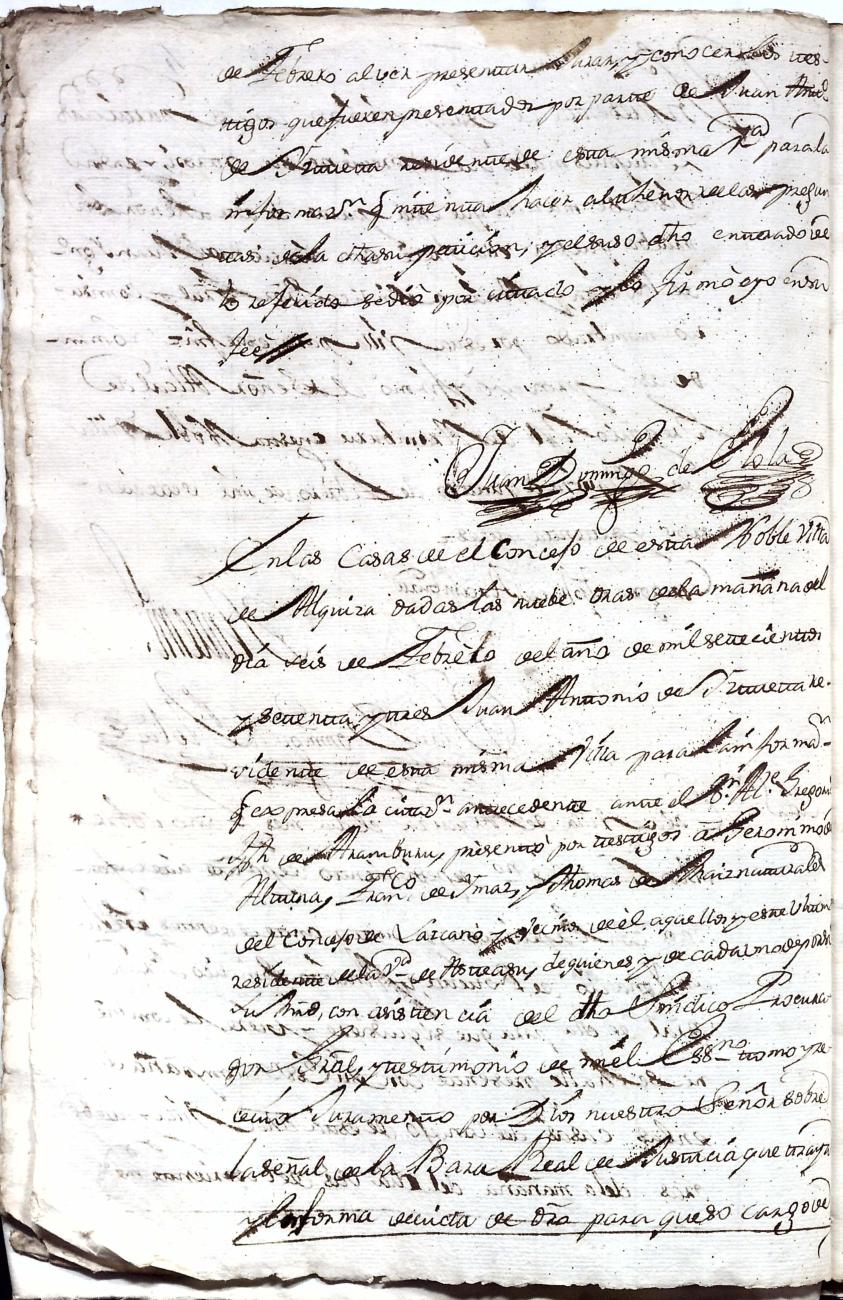 de Febrero al ver presentar Jurar, y conocer los tes-
tigos que fueren presentados por parte de Juan Antº
de Yrureta residente de esta misma Vª para la
informazⁿ q̃ intenta hacer al thenor de las pregun
tas de la dha su peticion, y el suso dho enterado de
lo referido se dió por citado y lo firmó e yo en su
fee
Juan Domingo de Olola
En las Casas de el Concejo de esta Noble Villa
de Alquiza dadas las nuebe oras de la mañana del
dia seis de Febrero del año de mil setecientos
y setenta y tres Juan Antonio de Yrureta re-
sidente de esta misma Villa para la informaⁿ
q̃ expresa la citazⁿ antecedente ante el Sʳ Alᵉ Gregorio
de Aramburu, presentó por testigos á Geronimo de
Altuna, Franᶜᵒ de Ymaz, y Thomas de naturales
del Concejo de Lazcano y vecinos de él aquellos y este ultimo
residente de la Vª de Asteasu, de quienes y de cada uno de por si
su Mrd, con asistencia del dho Sindico Procura
dor Gral, y testimonio de mi el Essⁿᵒ tomo y re
civio Juramento por Dios nuestro Señor sobre
la señal de la Bara Real de Justicia que
y en forma devida de dro para que so cargo de